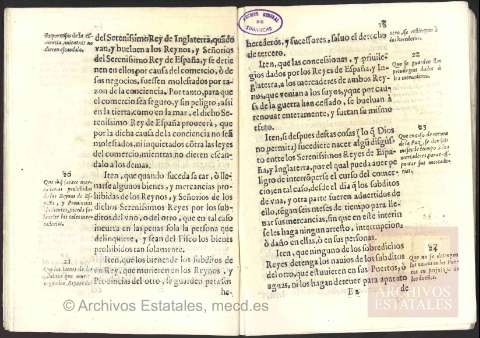 del Serenissimo Rey de Inglaterra, quãdo
van, y bueluen a los Reynos, y Señorios
del Serenissimo Rey de España, y se detie
nen en ellos por causa del comercio, o de
sus negocios, no fuessen molestados por ra
zon de la conciencia. Por tanto, para que
el comercio sea seguro, y sin peligro, assi
en la tierra, como en la mar, el dicho Se-
renissimo Rey de España proueerà, que
por la dicha causa de la conciencia no seã
molestados, ni inquietados cõtra las leyes
del comercio, mientras no dieren escan-
dalo a los demas.
20
Iten, que quando suceda sacar, o lle-
uarse algunos bienes, y mercancias pro-
hibidas de los Reynos, y Señorios de los
dichos Serenissimos Reyes por los subdi-
tos del vno, o del otro, que en tal caso
incurra en las penas sola la persona que
delinquiere, y sean del Fisco los bienes
prohibidos tan solamente.
21
Iten, que los bienes de los subditos de
Rey, que murieren en los Reynos, y
Prouincias del otro, se guarden para sus
he-
ARCHIVO GENERAL DE SIMANCAS
herederos, y sucessores, saluo el derecho
de tercero.
22
Iten, que las concessiones, y priuile-
gios dados por los Reyes de España, y In-
glaterra, a los mercaderes de ambos Rey-
nos, que vengan a los suyos, y que por cau-
sas de la guerra han cessado, se bueluan à
renouar enteramente, y surtan su mismo
efecto.
23
Iten, si despues destas cosas (lo q̃ Dios
no permita) sucediere nacer algũ disgus-
to entre los Serenissimos Reyes de Espa-
ña, y Inglaterra, por el qual pueda auer pe
ligro de interrõperse el curso del comer-
cio, en tal caso, desde el dia q̃ los subditos
de vna, y otra parte fueren aduertidos de
ello, tẽgan seis meses de tiempo para lle-
uar sus mercancias, sin que en este interin
se les haga ningun arresto, interrupcion,
ò daño en ellas, ò en sus personas.
24
Iten, que ninguno de los sobredichos
Reyes detenga los nauios de los subditos
del otro, que estuuieren en sus Puertos, ò
aguas, ni los hagan detener para aparato
E 2 de
© Archivos Estatales, mecd.es
ARCHIVOS
ESTATALES